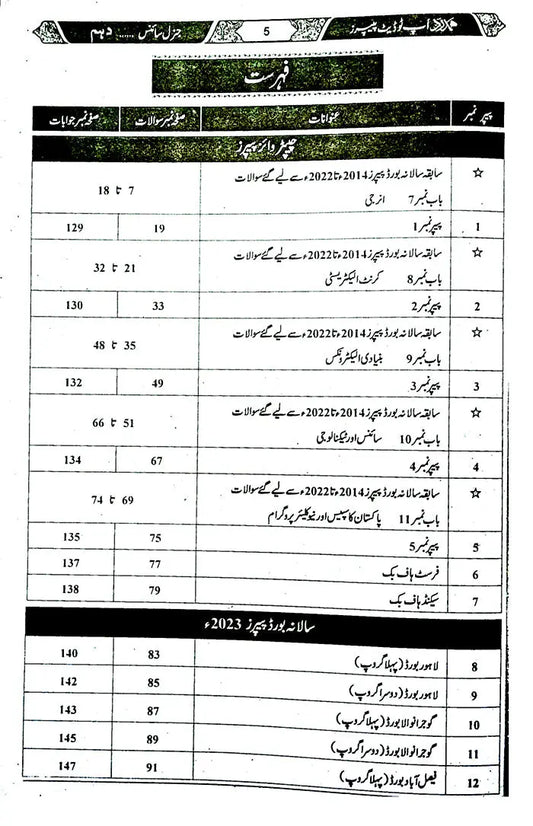 ہمدرد اَپ ٹو ڈیٹ پیپرز 5 جنرل سائنس ...... دہم
فہرست
پیپر نمبر عنوانات صفحہ نمبر سوالات صفحہ نمبر جوابات
چیپٹر وائز پیپرز
☆ سابقہ سالانہ بورڈ پیپرز 2014ء تا 2022ء سے لیے گئے سوالات
باب نمبر 7 انرجی 7 تا 18
1 پیپر نمبر 1 19 129
☆ سابقہ سالانہ بورڈ پیپرز 2014ء تا 2022ء سے لیے گئے سوالات
باب نمبر 8 کرنٹ الیکٹریسٹی 21 تا 32
2 پیپر نمبر 2 33 130
☆ سابقہ سالانہ بورڈ پیپرز 2014ء تا 2022ء سے لیے گئے سوالات
باب نمبر 9 بنیادی الیکٹرونکس 35 تا 48
3 پیپر نمبر 3 49 132
☆ سابقہ سالانہ بورڈ پیپرز 2014ء تا 2022ء سے لیے گئے سوالات
باب نمبر 10 سائنس اور ٹیکنالوجی 51 تا 66
4 پیپر نمبر 4 67 134
☆ سابقہ سالانہ بورڈ پیپرز 2014ء تا 2022ء سے لیے گئے سوالات
باب نمبر 11 پاکستان کا سپیس اور نیوکلیئر پروگرام 69 تا 74
5 پیپر نمبر 5 75 135
6 فرسٹ ہاف بک 77 137
7 سیکنڈ ہاف بک 79 138
سالانہ بورڈ پیپرز 2023ء
8 لاہور بورڈ (پہلا گروپ) 83 140
9 لاہور بورڈ (دوسرا گروپ) 85 142
10 گوجرانوالا بورڈ (پہلا گروپ) 87 143
11 گوجرانوالا بورڈ (دوسرا گروپ) 89 145
12 فیصل آباد بورڈ (پہلا گروپ) 91 147